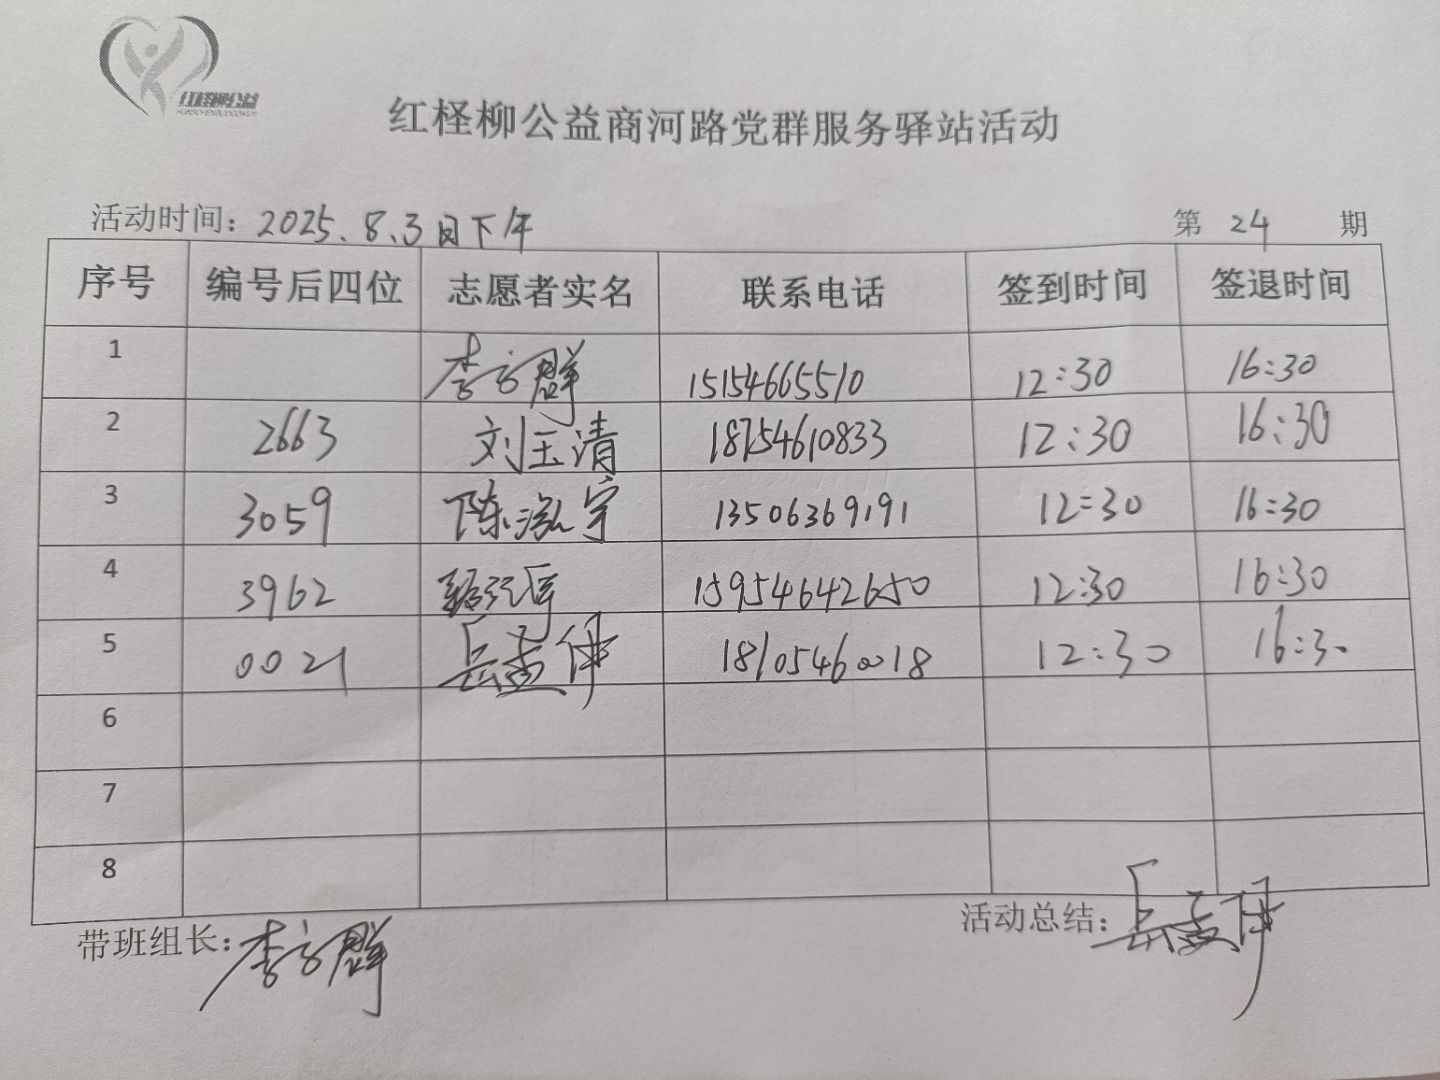 红柽柳公益
红柽柳公益商河路党群服务驿站活动
活动时间：2025.8.3日下午 第 24 期
序号 编号后四位 志愿者实名 联系电话 签到时间 签退时间
1 李立群 15154665510 12:30 16:30
2 2663 刘玉清 18754610833 12:30 16:30
3 3059 陈泓宇 13506369191 12:30 16:30
4 3962 15954642650 12:30 16:30
5 0021 岳孟伟 18105460018 12:30 16:30
6
7
8
带班组长：李立群 活动总结：岳孟伟